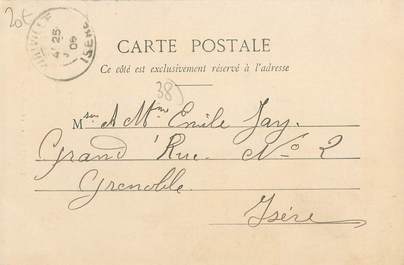 20€
4ᴱ 25
06
ISERE
CARTE POSTALE
Ce côté est exclusivement réservé à l'adresse
38
Msieur & Mme Emile Jay.
Grand'Rue. No 2
Grenoble
Isére